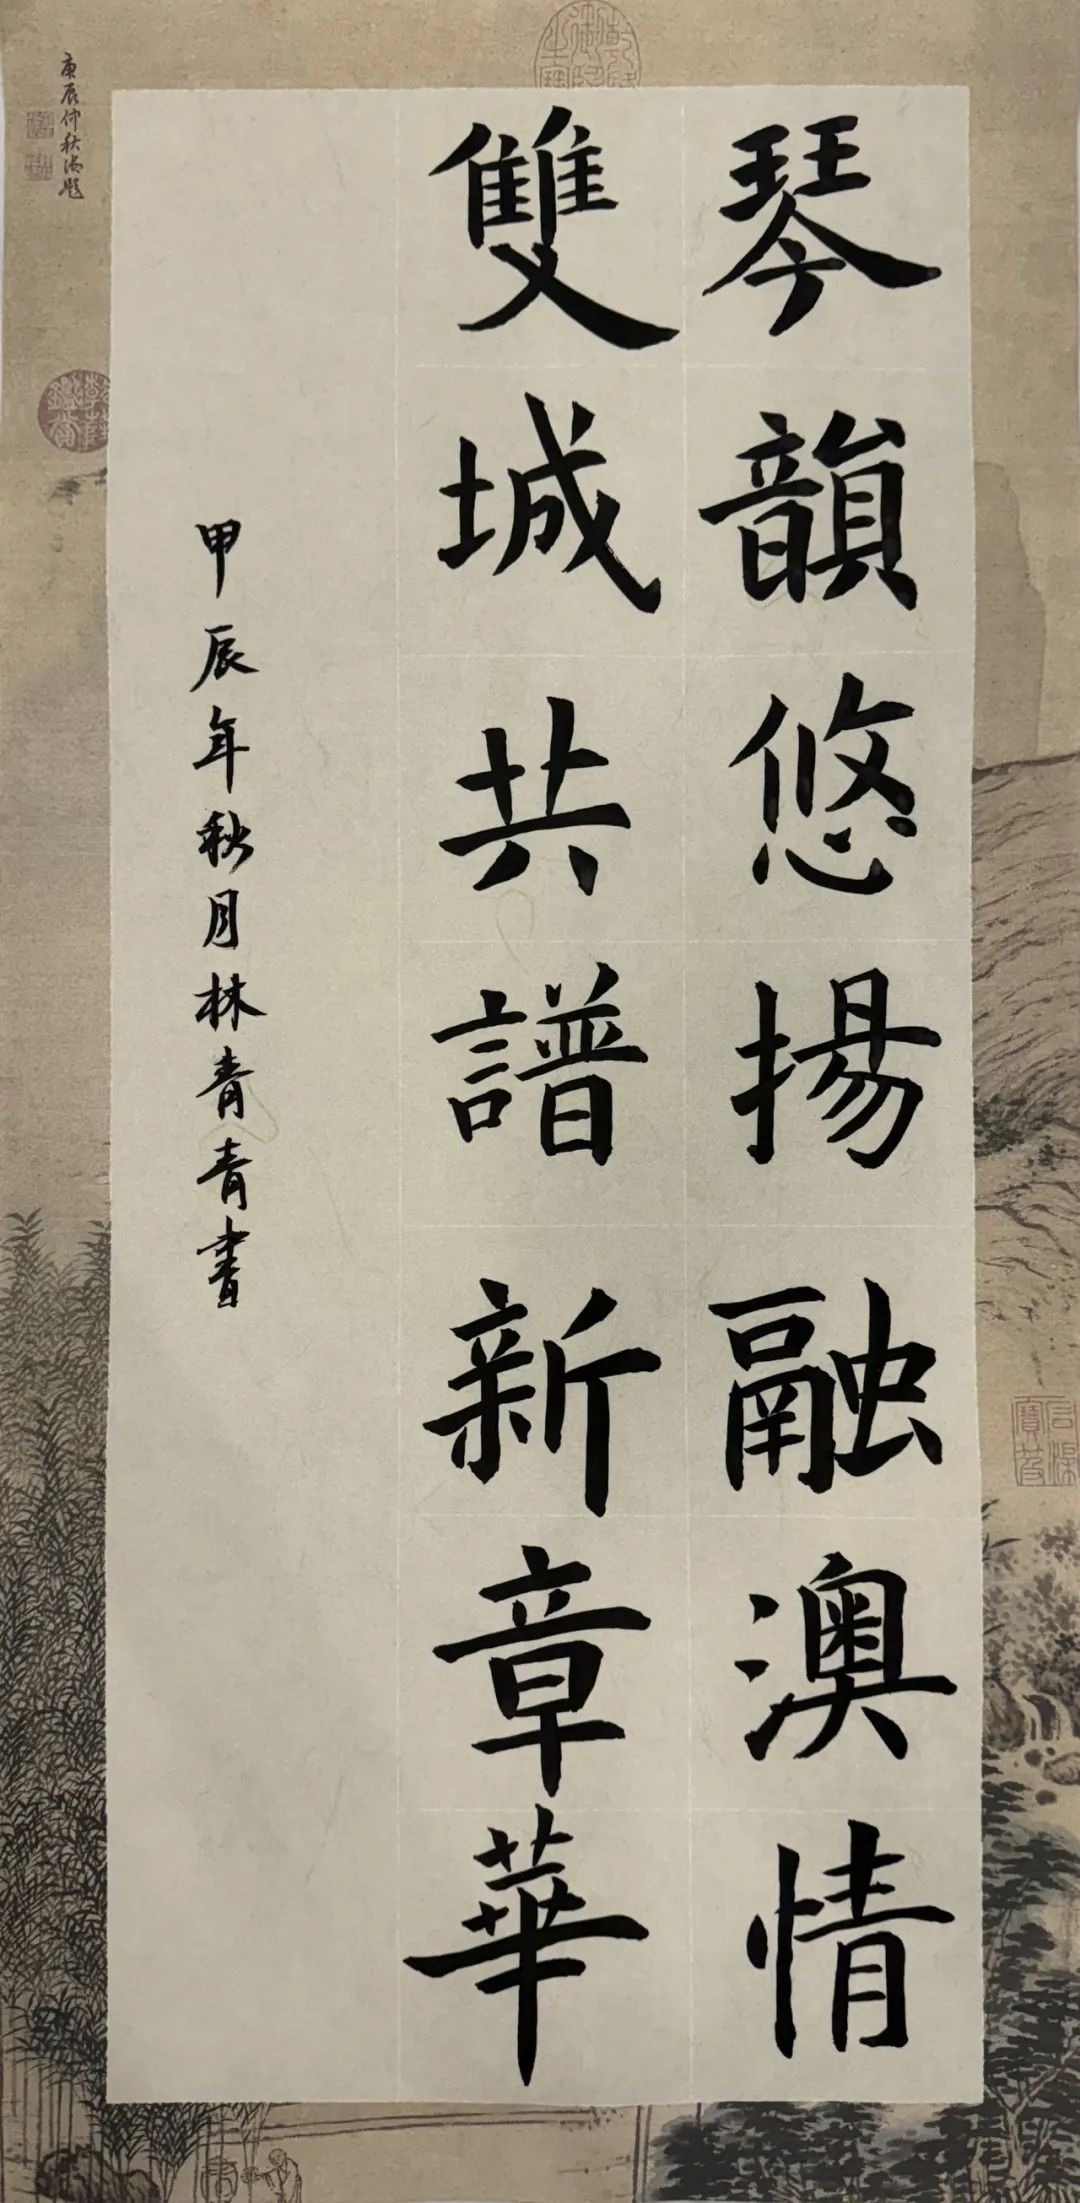 琴韻悠揚融澳情
雙城共譜新章華
甲辰年秋月林青青書
庚辰仲秋御題